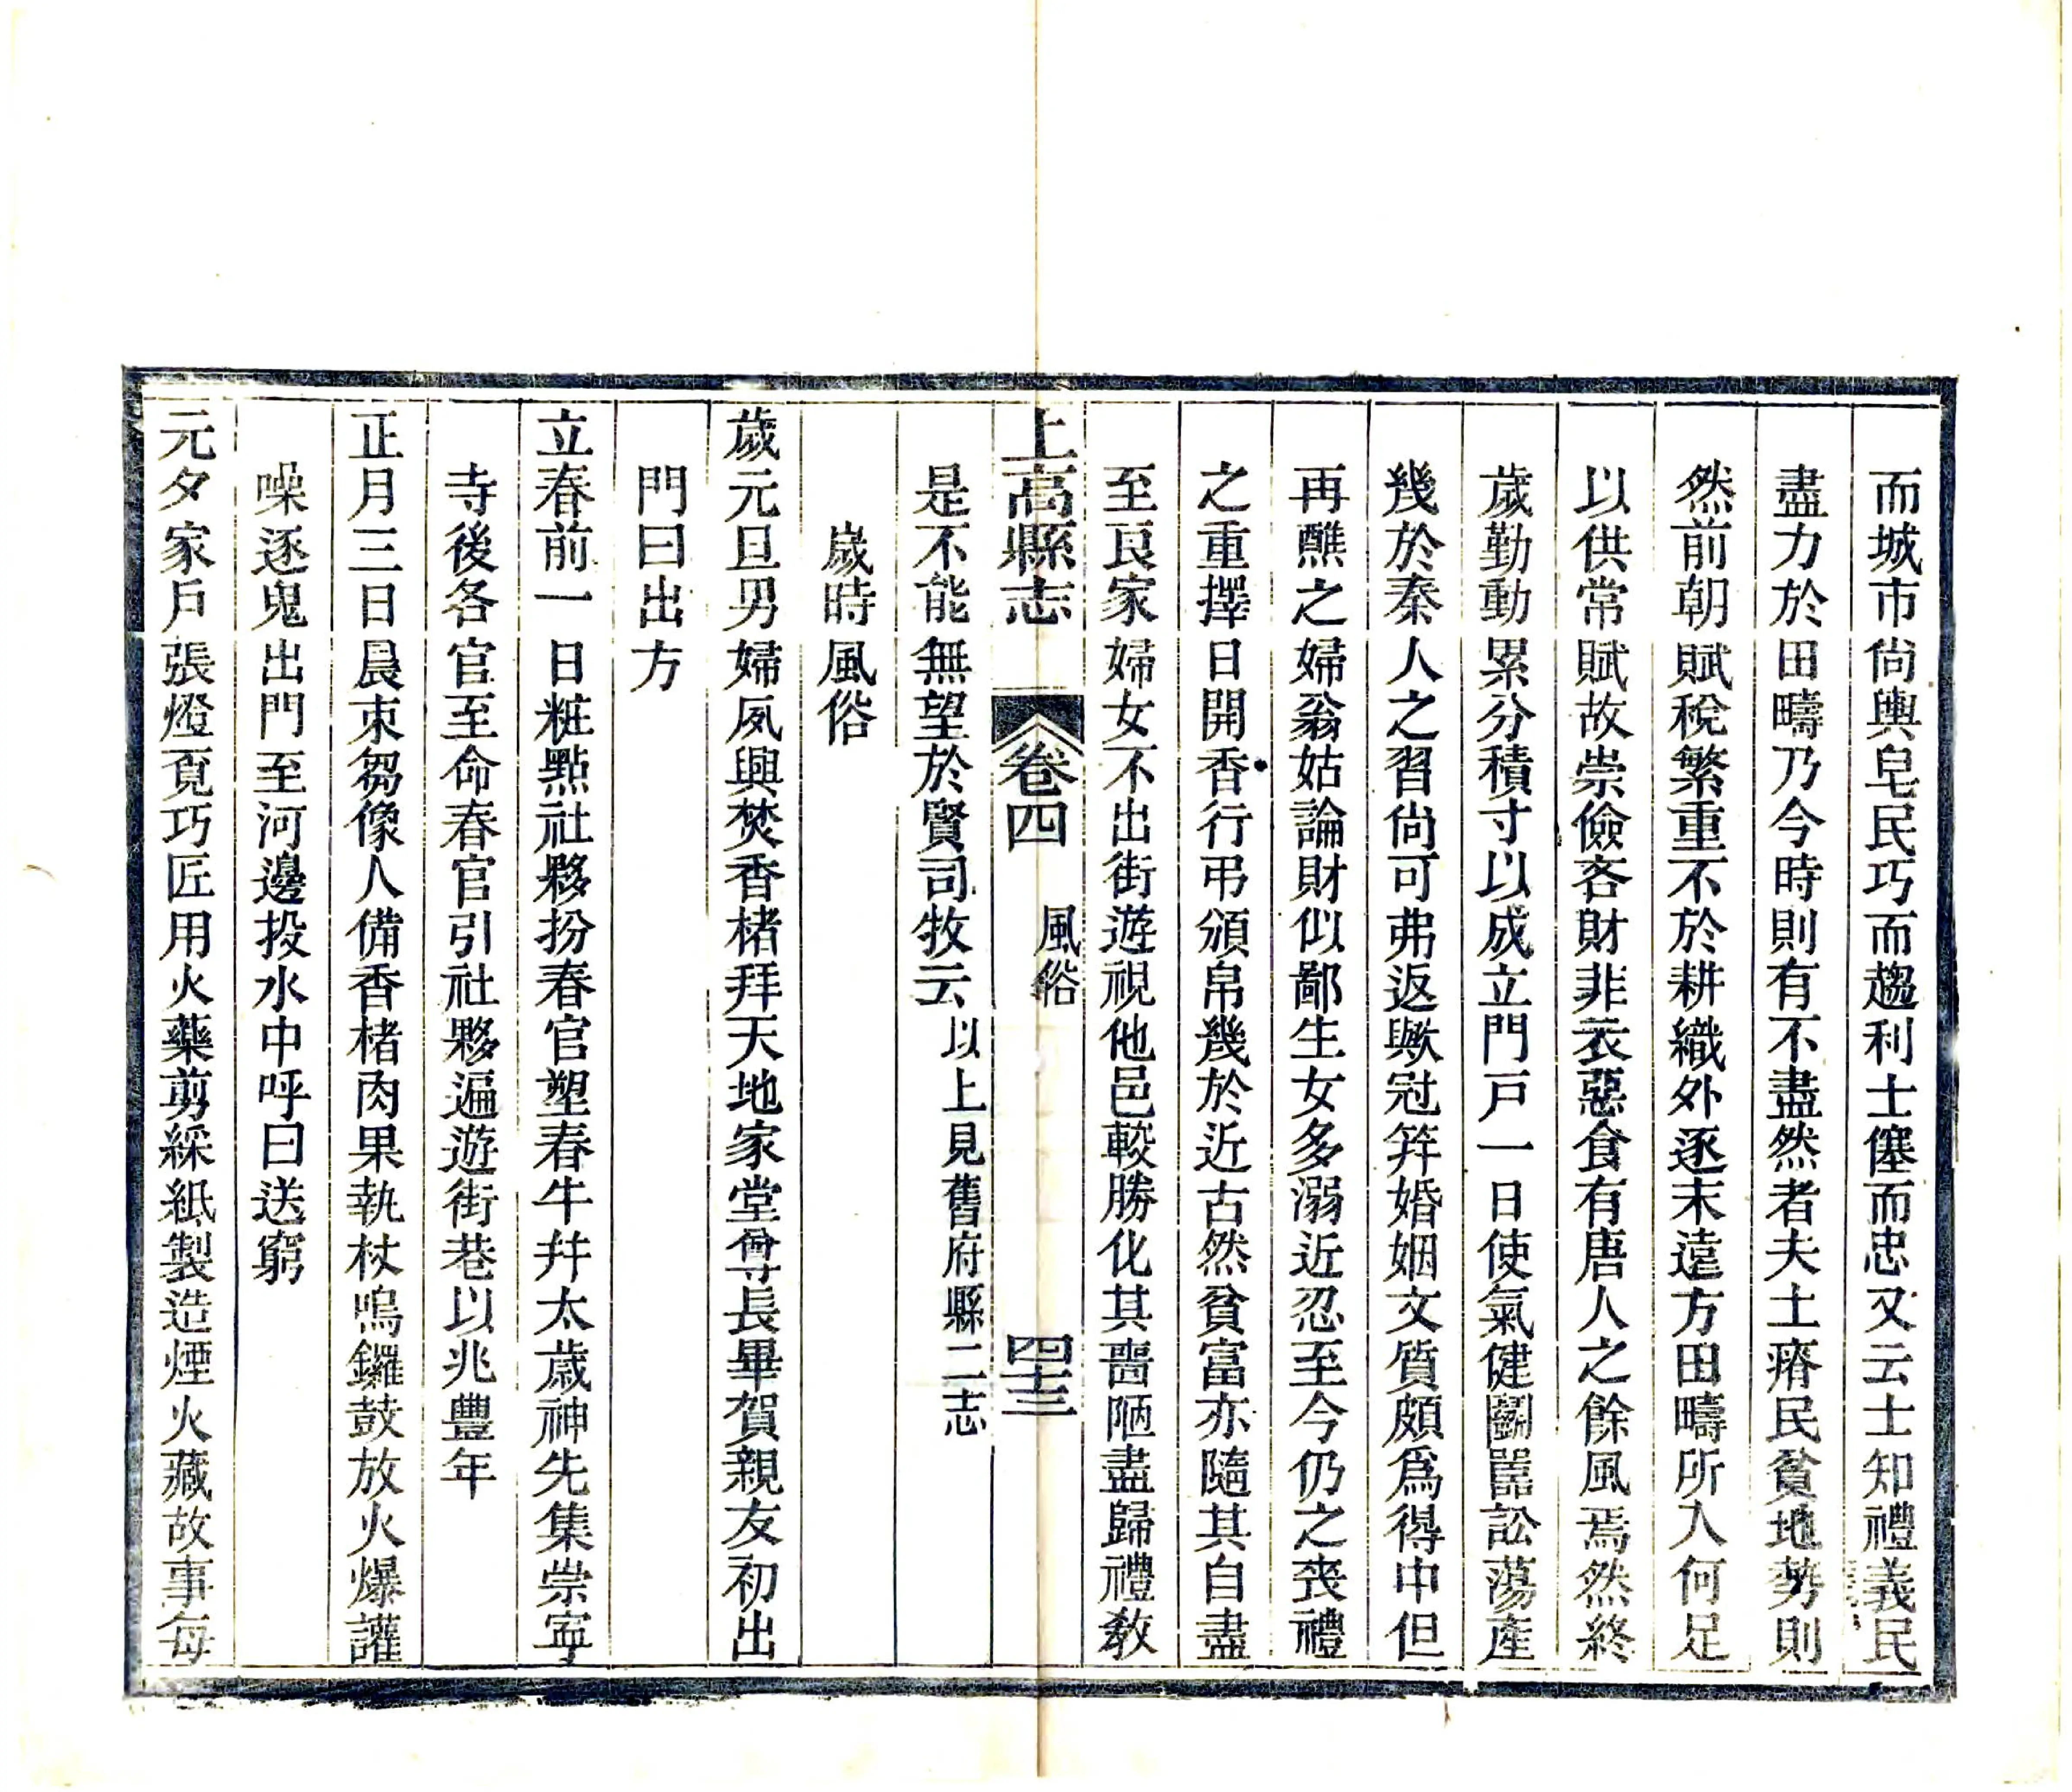 而城市尙輿皂民巧而趨利士僿而忠又云士知禮義民
盡力於田疇乃今時則有不盡然者夫土瘠民貧地勢則
然前朝賦稅繁重不於耕織外逐末遠方田疇所入何足
以供常賦故崇儉吝財非衣惡食有唐人之餘風焉然終
歲勤動累分積寸以成立門戸一日使氣健鬬嚚訟蕩產
幾於秦人之習尙可弗返歟冠笄婚姻文質頗爲得中但
再醮之婦翁姑論財似鄙生女多溺近忍至今仍之喪禮
之重擇日開香行弔頒帛幾於近古然貧富亦隨其自盡
至良家婦女不出街遊視他邑較勝化其嗇陋盡歸禮教
上高縣志 卷四 風俗 四十三
是不能無望於賢司牧云以上見舊府縣二志
歲時風俗
歲元旦男婦夙興焚香楮拜天地家堂尊長畢賀親友初出
門曰出方
立春前一日粧點社夥扮春官塑春牛幷太歲神先集崇寧
寺後各官至命春官引社夥遍遊街巷以兆豐年
正月三日晨束芻像人備香楮肉果執杖鳴鑼鼓放火爆讙
噪逐鬼出門至河邊投水中呼曰送窮
元夕家戶張燈覓巧匠用火藥剪綵紙製造煙火藏故事每